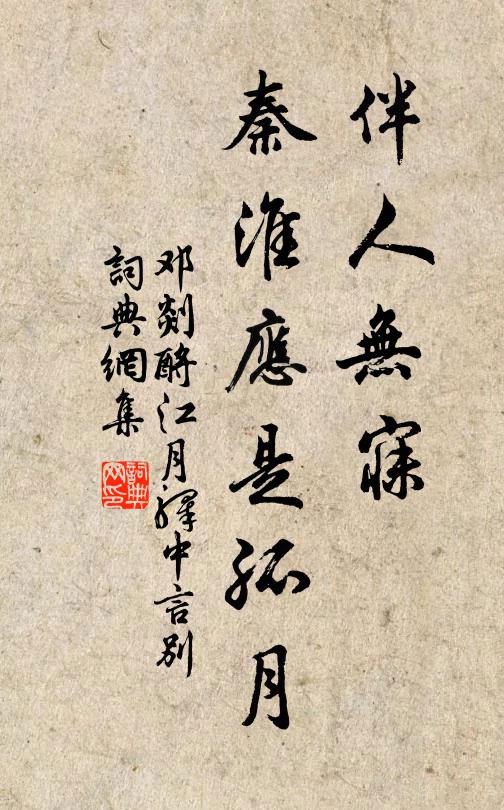 伴人無寐
秦淮應是孤月
邓剡酹江月·驛中言別
詞典網集
詞典網印